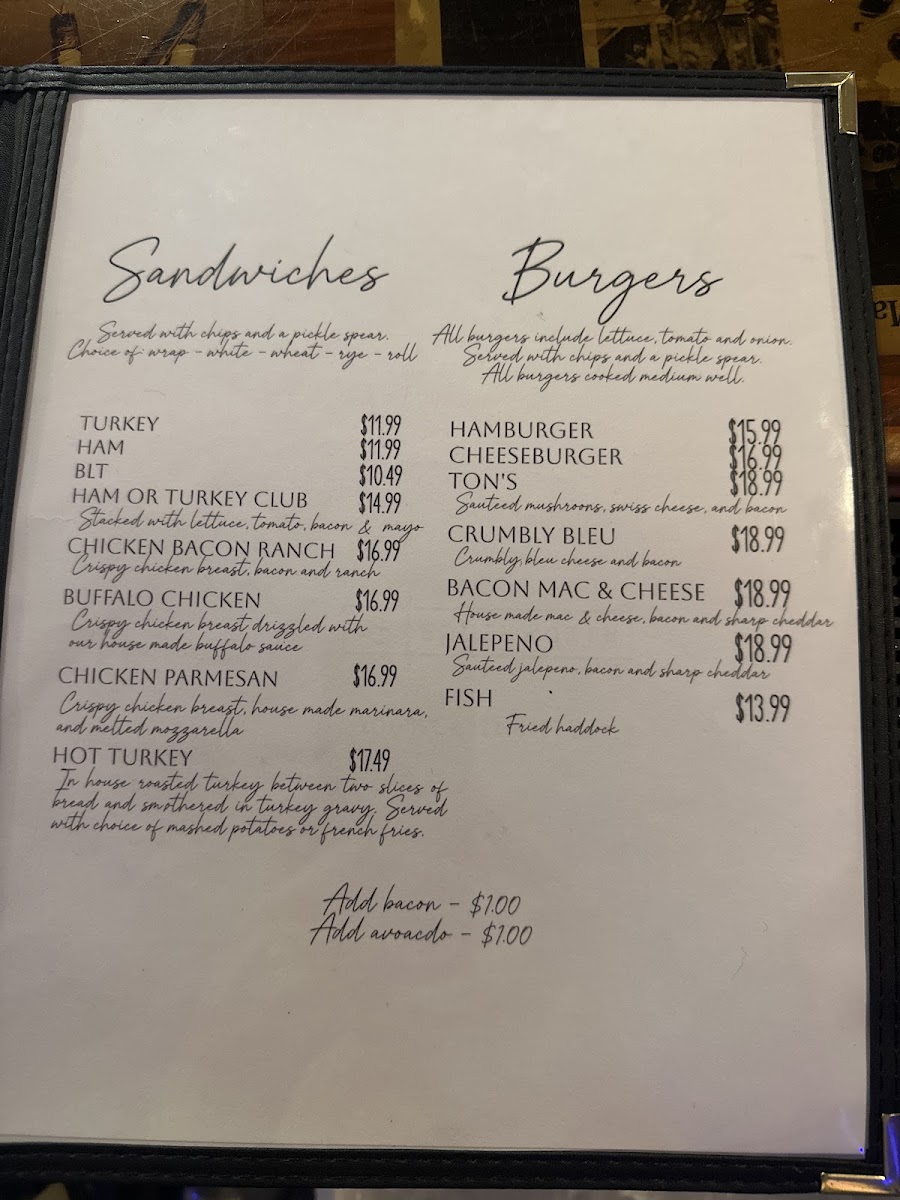 Sandwiches
Served with chips and a pickle spear.
Choice of: wrap - white - wheat - rye - roll
TURKEY $11.99
HAM $11.99
BLT $10.49
HAM OR TURKEY CLUB $14.99
Stacked with lettuce, tomato, bacon & mayo
CHICKEN BACON RANCH $16.99
Crispy chicken breast, bacon and ranch
BUFFALO CHICKEN $16.99
Crispy chicken breast drizzled with
our house made buffalo sauce
CHICKEN PARMESAN $16.99
Crispy chicken breast, house made marinara,
and melted mozzarella
HOT TURKEY $17.49
In house roasted turkey between two slices of
bread and smothered in turkey gravy. Served
with choice of mashed potatoes or french fries.
Burgers
All burgers include lettuce, tomato and onion.
Served with chips and a pickle spear.
All burgers cooked medium well.
HAMBURGER $15.99
CHEESEBURGER $16.99
TON'S $18.99
Sauteed mushroons, swiss cheese, and bacon
CRUMBLY BLEU $18.99
Crumbly bleu cheese and bacon
BACON MAC & CHEESE $18.99
House made mac & cheese, bacon and sharp cheddar
JALEPENO $18.99
Sauteed jalepeno, bacon and sharp cheddar
FISH $13.99
Fried haddock
Add bacon - $1.00
Add avoacdo - $1.00